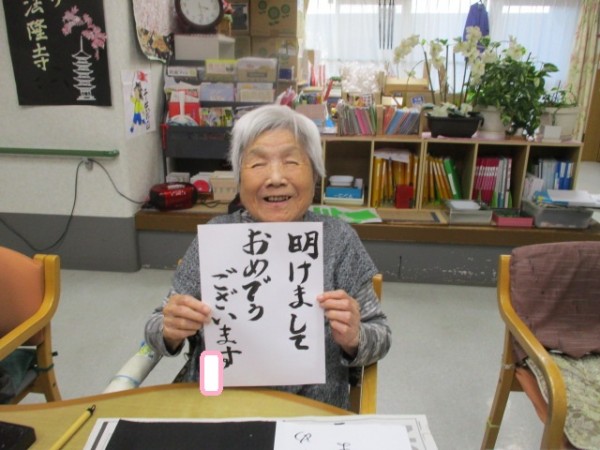 明けまして
おめでとう
ございます
法隆寺
め